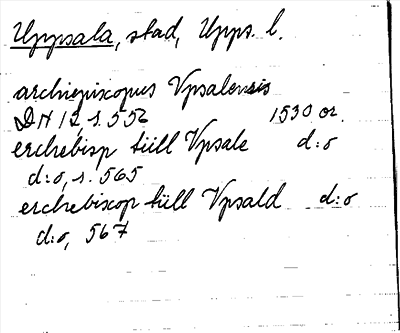 Uppsala, stad, Upps. l.
archiepiscopus Vpsalensis
DN 12, s. 556 1530 or.
erchebisp tiill Vpsale d:o
d:o, s. 565
erchebiscop tiill Vpsald d:o
d:o, 567